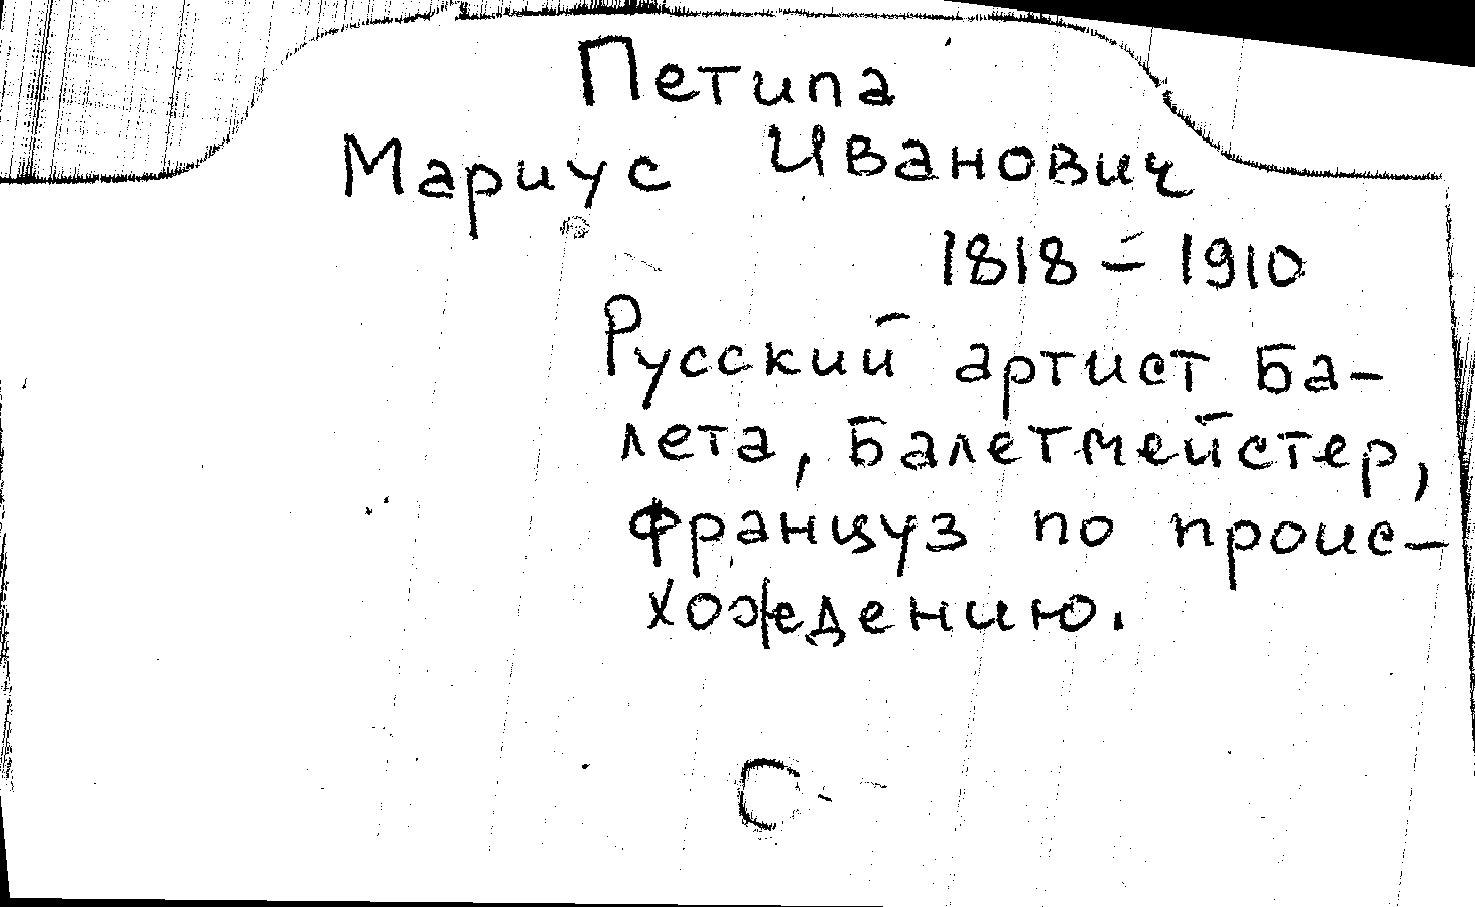 Петипа
Мариус Иванович
1818 – 1910
Русский артист ба-
лета, балетмейстер,
француз по проис-
хождению.